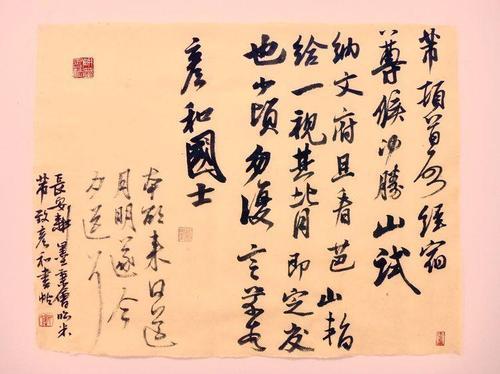 芾頓首啟經宿
尊候沖勝山試
納文府且看芭山暫
給一視其背即定交
也少頃勿復言芾頓首
彥和國士
本欲來日送
月明遂今
夕送耳
長安 墨 臨米
芾致彥和書帖